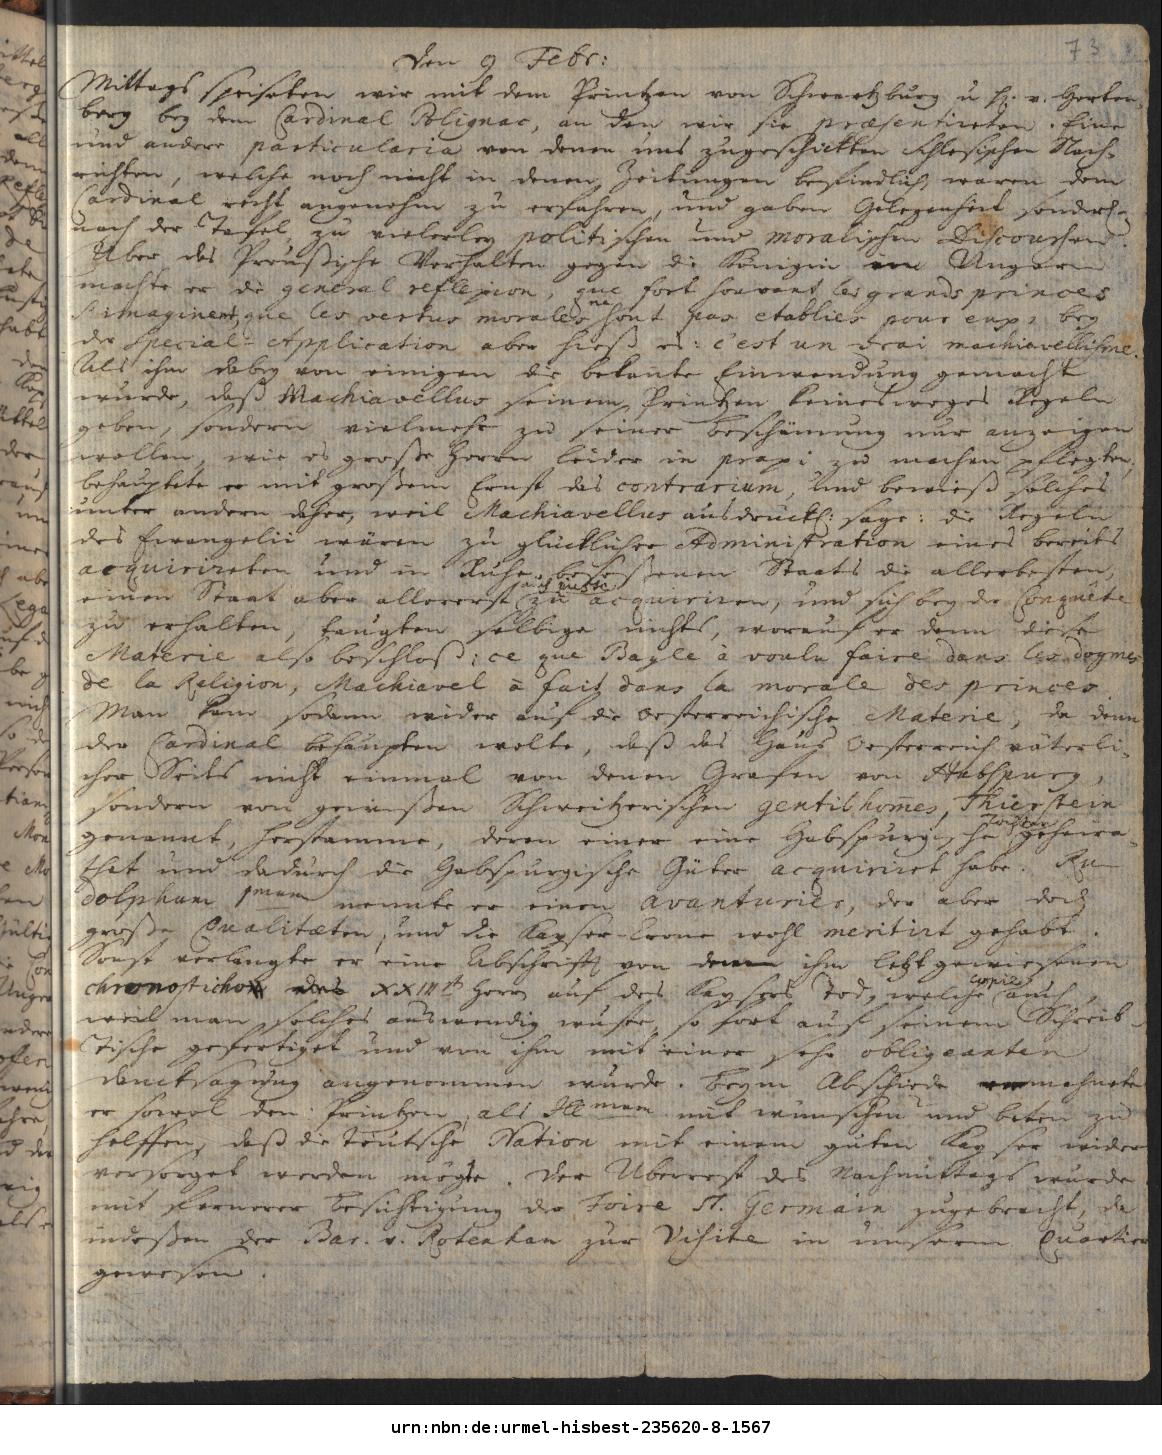 73
Den 9 Febr:
Mittags speiseten wir mit dem Printzen von Schwartzburg u H. v. Herten-
berg bey dem Cardinal Polignac, an den wir sie præsentireten. Eine
und andere particularia von denen uns zugeschickten Schlesischen Nach-
richten, welche noch nicht in denen Zeitungen befindlich, waren dem
Cardinal recht angenehm zu erfahren, und gaben Gelegenheit sonderl.
nach der Tafel, zu vielerley politischen und moralischen Discourshen.
Uber das Preußische Verhalten gegen die Königin von Ungarn
machte er die general reflexion, que fort souvent les grands princes
s'imaginent, que les vertus morales ne sont pas etablies pour eux, bey
der Special-Application aber hieß es: c'est un vrai machiavellisme.
Als ihm dabey von einigen die bekante Einwendung gemacht
wurde, daß Machiavellus seinem Printzen keinesweges Regeln
geben, sondern vielmehr zu seiner beschämung nur anzeigen
wollen, wie es große Herren leider in praxi zu machen pflegten,
behauptete er mit großem Ernst das contrarium, und bewieß solches
unter andern daher, weil Machiavellus ausdrückl: sage: die Regeln
des Evangelii wären zu glücklicher Administration eines bereits
acquirireten und in Ruhe beseßenen Staats die allerbesten,
einen Staat aber allererst zu acquiriren, und sich bey der Conquête
zu erhalten, taugten selbige nichts, worauf er denn diese
Materie also beschloß: ce que Bayle à voulu faire dans les dogmes
de la Religion, Machiavel à fait dans la morale des princes.
Man kam sodann wider auf die Oesterreichische Materie, da denn
der Cardinal behaupten wolte, daß das Hauß Oesterreich väterli-
cher Seits nicht einmal von denen Grafen von Habspurg,
sondern von gewißen Schweitzerischen gentilhom̄es, Thierstein
genannt, herstamme, deren einer eine Habspurgische Tochter geheira-
thet und dadurch die Habspurgische Güter acquiriret habe. Ru-
dolphum Imum nennte er einen avanturier, der aber doch
große Qualitæten, und die Kayser-Crone wohl meritirt gehabt.
Sonst verlangte er eine Abschrifft von dem ihm letzt gewiesenen
chronosticho des XXIIIst Herrn auf des Kaysers Tod, welche copie auch,
weil man solches auswendig wuste, so fort auf seinem Schreib-
Tische gefertiget und von ihm mit einer sehr obligeanten
dancksagung angenommen wurde. Beym Abschiede ermahnete
er sowol den Printzen, als Illmum mit wünschen und beten zu
helffen, daß die teutsche Nation mit einem guten Kayser wider
versorget werden mögte. Der Uberrest des Nachmittags wurde
mit fernerer besichtigung der Foire St. Germain zugebracht, da
indeßen der Bar. v. Rotenhan zur Visite in unserm Quartier
gewesen.
urn:nbn:de:urmel-hisbest-235620-8-1567